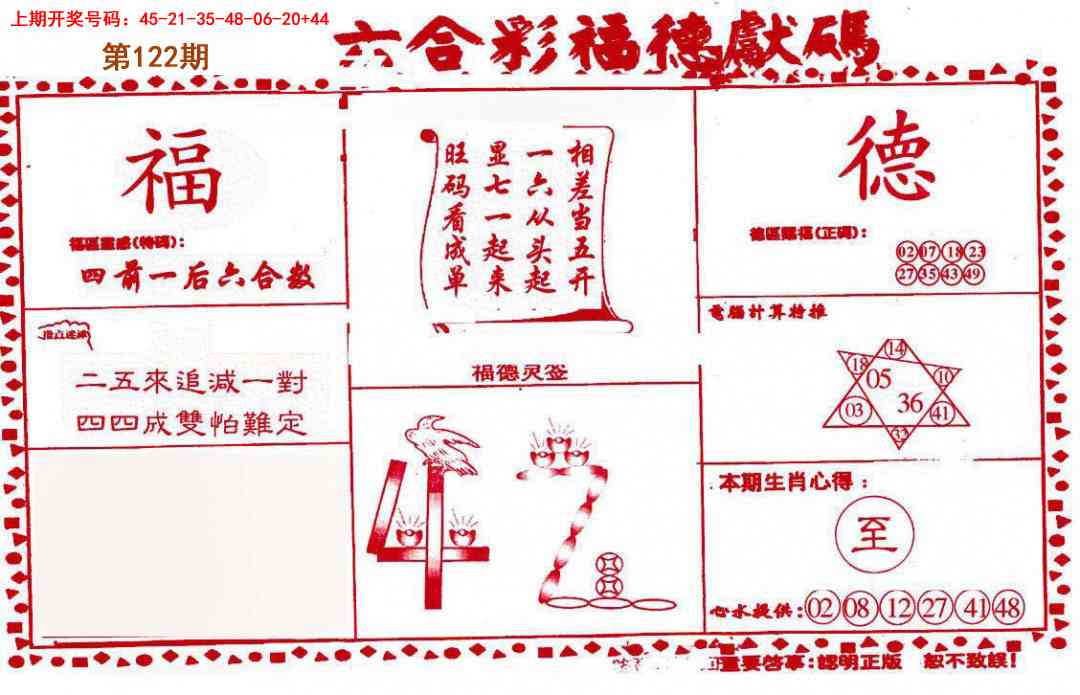 上期开奖号码：45-21-35-48-06-20+44
第122期
六合彩福德獻碼
福
福區靈感(特碼)：
四前一后六合数
相差当五开
一六从头起
显七一起来
旺码看成单
福德灵签
德
德區賜福(正碼)：
02 07 18 23
27 35 43 49
電腦計算特推
14
18 05 10
03 36 41
32
二五來追減一對
四四成雙怕難定
42
本期生肖心得：
至
心水提供：02 08 12 27 41 48
重要啓事：認明正版 恕不致誤！